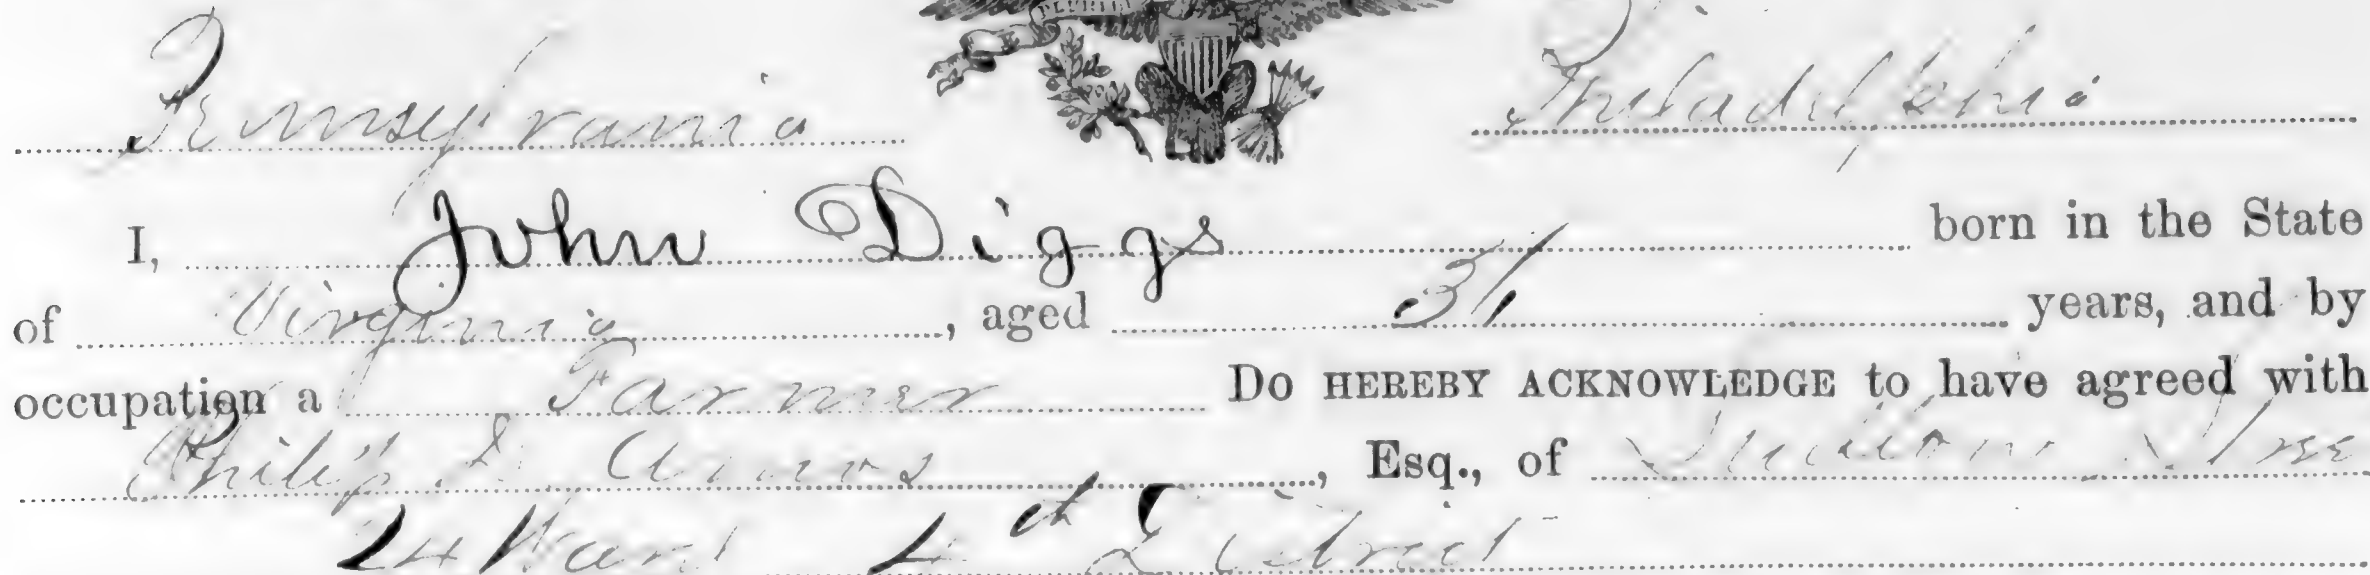 PLURIB
Pennsylvania Philadelphia
I, John Diggs born in the State
of Virginia, aged 31 years, and by
occupation a Farmer Do HEREBY ACKNOWLEDGE to have agreed with
Philip S. Amos, Esq., of
24 Ward 4th District